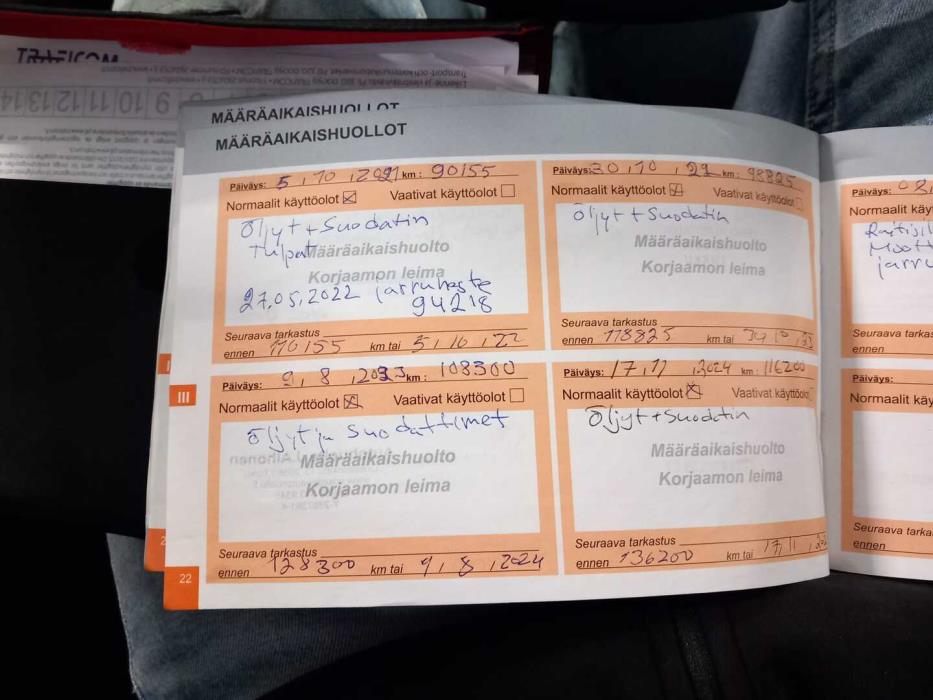 TRAFICOM
10 11 12 13 14
MÄÄRÄAIKAISHUOLLOT
MÄÄRÄAIKAISHUOLLOT
Päiväys: 5 , 10 , 2021 km: 90155
Normaalit käyttöolot ☒ Vaativat käyttöolot ☐
Öljyt + Suodatin
Tulpat
Määräaikaishuolto
Korjaamon leima
27.05.2022 jarruneste
94218
Seuraava tarkastus
ennen 110155 km tai 5 , 10 , 22
Päiväys: 30 , 10 , km: 98825
Normaalit käyttöolot ☒ Vaativat käyttöolot ☐
Öljyt + Suodatin
Määräaikaishuolto
Korjaamon leima
Seuraava tarkastus
ennen 118825 km tai
Päiväys: 9 , 8 , 2023 km: 108300
Normaalit käyttöolot ☒ Vaativat käyttöolot ☐
Öljyt ja Suodattimet
Määräaikaishuolto
Korjaamon leima
Seuraava tarkastus
ennen 128300 km tai 9 , 8 , 2024
Päiväys: 17 , 11 , 2024 km: 116200
Normaalit käyttöolot ☒ Vaativat käyttöolot
Öljyt + Suodatin
Määräaikaishuolto
Korjaamon leima
Seuraava tarkastus
ennen 136200 km tai 17
III
22
Päiväys: 08
Normaalit käy
jarru
Seuraava tarkas
ennen
Päiväys:
Normaalit käy
Seuraava tarka
ennen